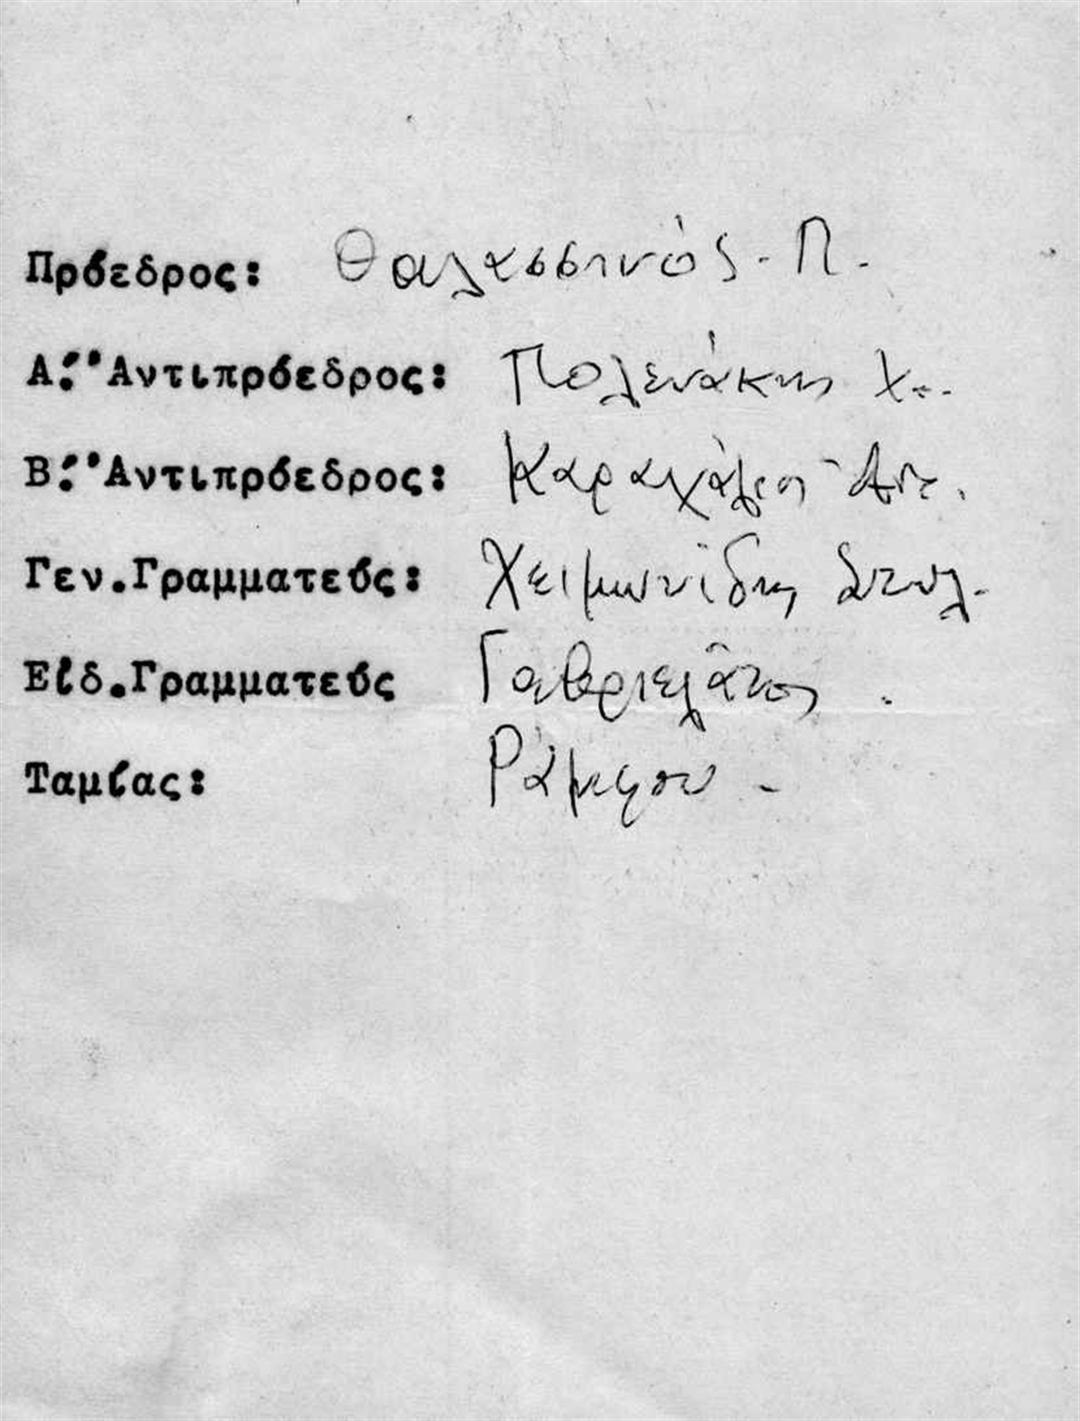 Πρόεδρος: Θαλασσινός - Π.
Α.' Ἀντιπρόεδρος: Πολενάκης Χ..
Β.' Ἀντιπρόεδρος: Ἀντ.
Γεν.Γραμματεύς: Χειμωνίδης Στυλ.
Εἰδ.Γραμματεύς Γαβριελᾶτος .
Ταμίας: